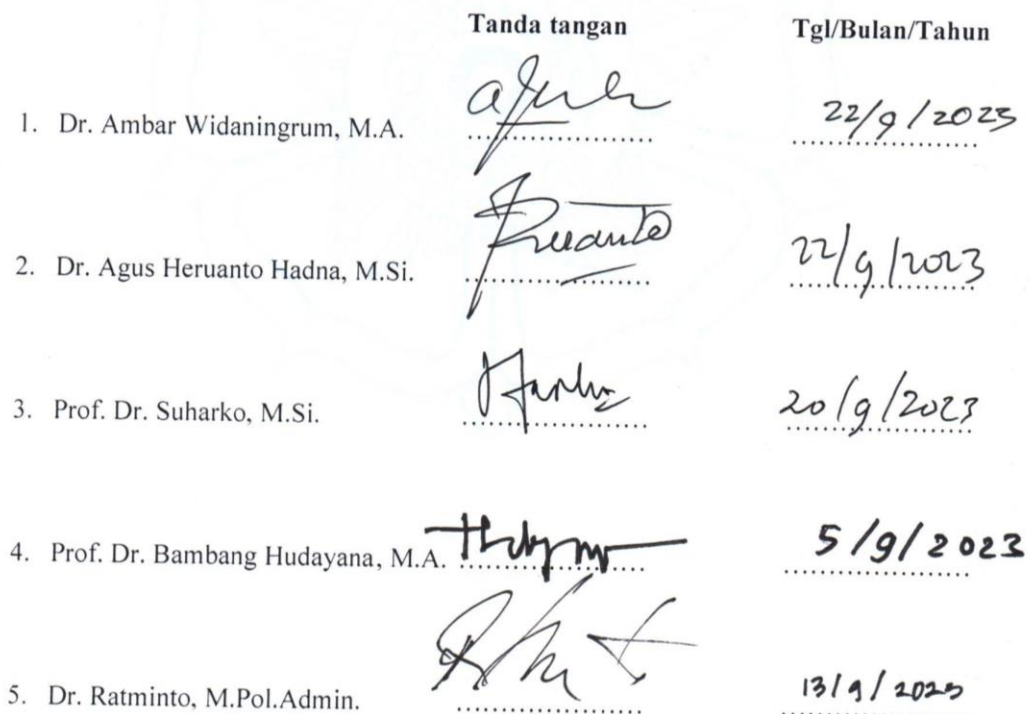 Tanda tangan Tgl/Bulan/Tahun
1. Dr. Ambar Widaningrum, M.A. .................... 22/9/2023
2. Dr. Agus Heruanto Hadna, M.Si. .................... 22/9/2023
3. Prof. Dr. Suharko, M.Si. .................... 20/9/2023
4. Prof. Dr. Bambang Hudayana, M.A. .................... 5/9/2023
5. Dr. Ratminto, M.Pol.Admin. .................... 13/9/2023